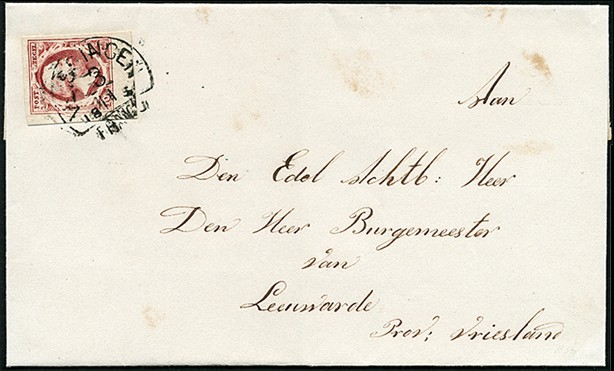 POST
ZEGEL
FRANCO
Aan
Den Edel Achtb: Heer
Den Heer Burgemeester
van
Leeuwarde
Prov: Vriesland